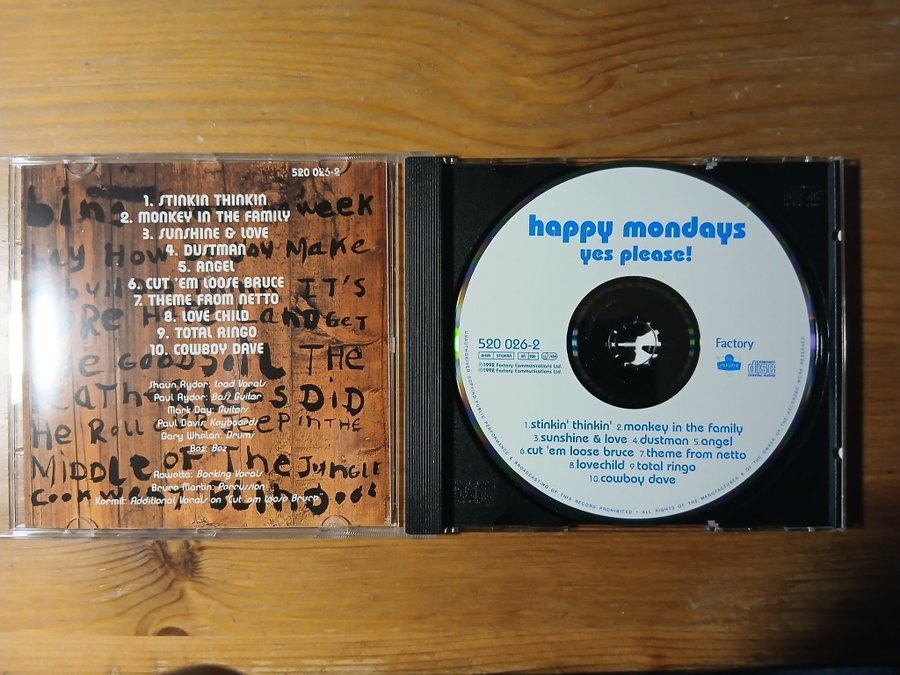 520 026-2
1. STINKIN THINKIN
2. MONKEY IN THE FAMILY
3. SUNSHINE & LOVE
4. DUSTMAN
5. ANGEL
6. CUT 'EM LOOSE BRUCE
7. THEME FROM NETTO
8. LOVE CHILD
9. TOTAL RINGO
10. COWBOY DAVE
week
How Make
IT'S
AND GET
THE
DID
He Roll IN THE
MIDDLE OF The JUNGLE
Shaun Ryder: Lead Vocals
Paul Ryder: Bass Guitar
Mark Day: Guitars
Paul Davis: Keyboards
Gary Whelan: Drums
Bez: Bez
Rowetta: Backing Vocals
Bruce Martin: Percussion
Kermit: Additional Vocals on "Cut 'em Loose Bruce"
happy mondays
yes please!
520 026-2
STEREO
℗1992 Factory Communications Ltd.
©1992 Factory Communications Ltd.
Factory
COMPACT
disc
DIGITAL AUDIO
1.stinkin' thinkin' 2.monkey in the family
3.sunshine & love 4.dustman 5.angel
6.cut 'em loose bruce 7.theme from netto
8.lovechild 9.total ringo
10.cowboy dave
UNAUTHORISED COPYING,PUBLIC PERFORMANCE & BROADCASTING OF THIS RECORD PROHIBITED · ALL RIGHTS OF THE MANUFACTURER & OF THE OWNER OF THE RECORDED WORK RESERVED